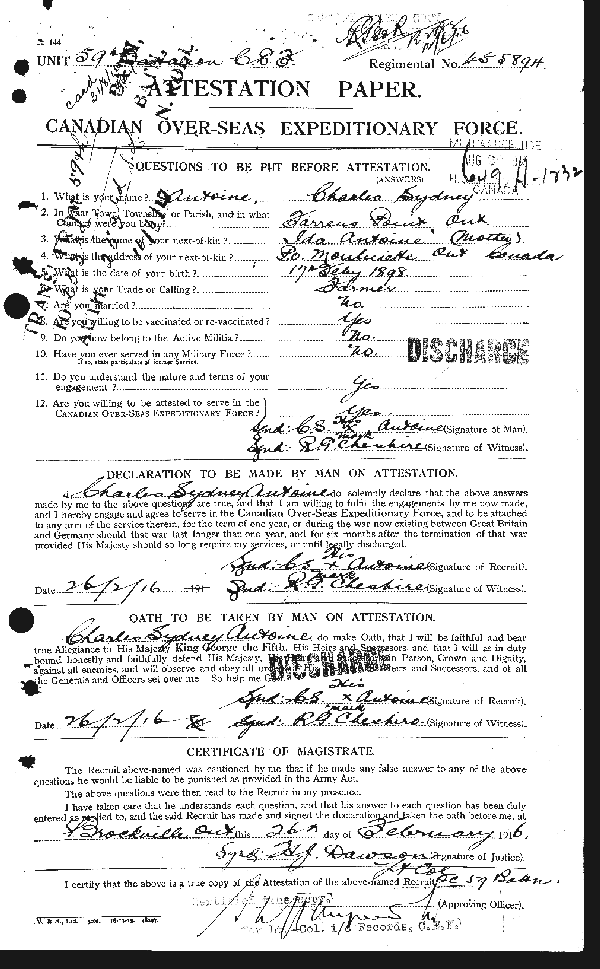 UNIT 59th Battalion C E F
Regimental No. 455894
ATTESTATION PAPER.
CANADIAN OVER-SEAS EXPEDITIONARY FORCE.
QUESTIONS TO BE PUT BEFORE ATTESTATION.
(ANSWERS)
1. What is your name? Antoine, Charles Sydney
2. In what Town, Township or Parish, and in what Country were you born? Farrens Point, Ont
3. What is the name of your next-of-kin? Ida Antoine (Mother)
4. What is the address of your next-of-kin? Po. Moulinette Ont Canada
5. What is the date of your birth? 17th Feby 1898
6. What is your Trade or Calling? Farmer
7. Are you married? No
8. Are you willing to be vaccinated or re-vaccinated? Yes
9. Do you now belong to the Active Militia? No
10. Have you ever served in any Military Force? No
If so, state particulars of former Service.
DISCHARGE
11. Do you understand the nature and terms of your engagement? Yes
12. Are you willing to be attested to serve in the CANADIAN OVER-SEAS EXPEDITIONARY FORCE? Yes
Sgnd C.S. His x mark Antoine (Signature of Man).
Sgnd R.G Cheshire (Signature of Witness).
DECLARATION TO BE MADE BY MAN ON ATTESTATION.
I, Charles Sydney Antoine do solemnly declare that the above answers
made by me to the above questions are true, and that I am willing to fulfil the engagements by me now made,
and I hereby engage and agree to serve in the Canadian Over-Seas Expeditionary Force, and to be attached
to any arm of the service therein, for the term of one year, or during the war now existing between Great Britain
and Germany should that war last longer than one year, and for six months after the termination of that war
provided His Majesty should so long require my services, or until legally discharged.
Sgnd CS His x mark Antoine (Signature of Recruit)
Date 26/2/16 191 Sgnd R.G Cheshire (Signature of Witness)
OATH TO BE TAKEN BY MAN ON ATTESTATION.
I, Charles Sydney Antoine, do make Oath, that I will be faithful and bear
true Allegiance to His Majesty King George the Fifth, His Heirs and Successors, and that I will as in duty
bound honestly and faithfully defend His Majesty, His Heirs and Successors, in Person, Crown and Dignity,
against all enemies, and will observe and obey all orders of His Majesty, His Heirs and Successors, and of all
the Generals and Officers set over me. So help me God.
DISCHARGE
Sgnd CS His x mark Antoine (Signature of Recruit)
Date 26/2/16 Sgnd R.G Cheshire (Signature of Witness)
CERTIFICATE OF MAGISTRATE.
The Recruit above-named was cautioned by me that if he made any false answer to any of the above
questions he would be liable to be punished as provided in the Army Act.
The above questions were then read to the Recruit in my presence.
I have taken care that he understands each question, and that his answer to each question has been duly
entered as replied to, and the said Recruit has made and signed the declaration and taken the oath before me, at
Brockville Ont this 26th day of February 1916.
Sgnd H.J. Dawson (Signature of Justice)
Lt Col
I certify that the above is a true copy of the Attestation of the above-named Recruit. OC 59 Battn.
(Approving Officer)
Lt.-Col. i/c Records, C.E.F.